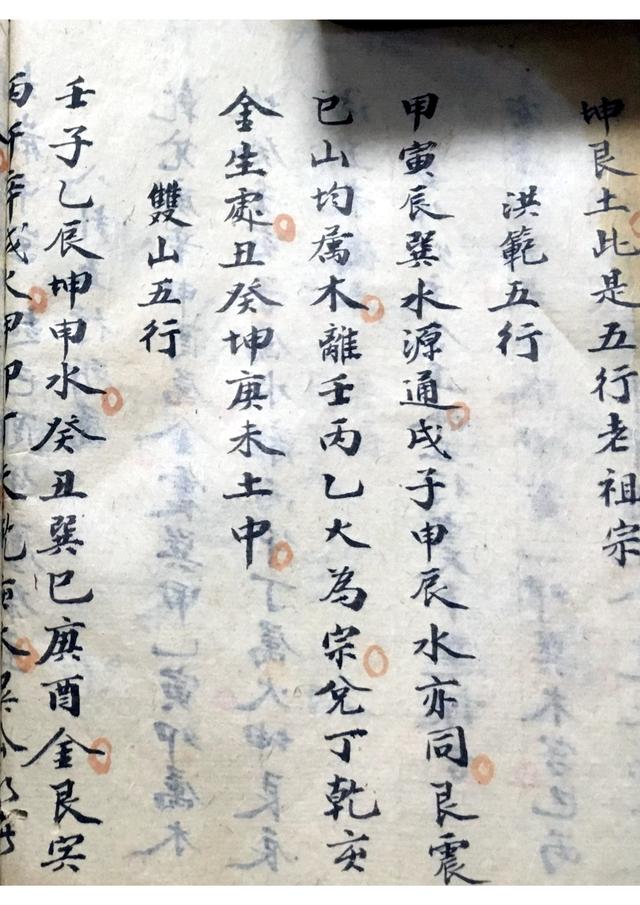 坤艮土此是五行老祖宗
洪範五行
甲寅辰巽水源通戌子申辰水亦同艮震
巳山均属木離壬丙乙火為宗兌丁乾亥
金生處丑癸坤庚未土中
雙山五行
壬子乙辰坤申水癸丑巽巳庚酉金艮寅
丙午辛戌火甲卯丁未乾亥木